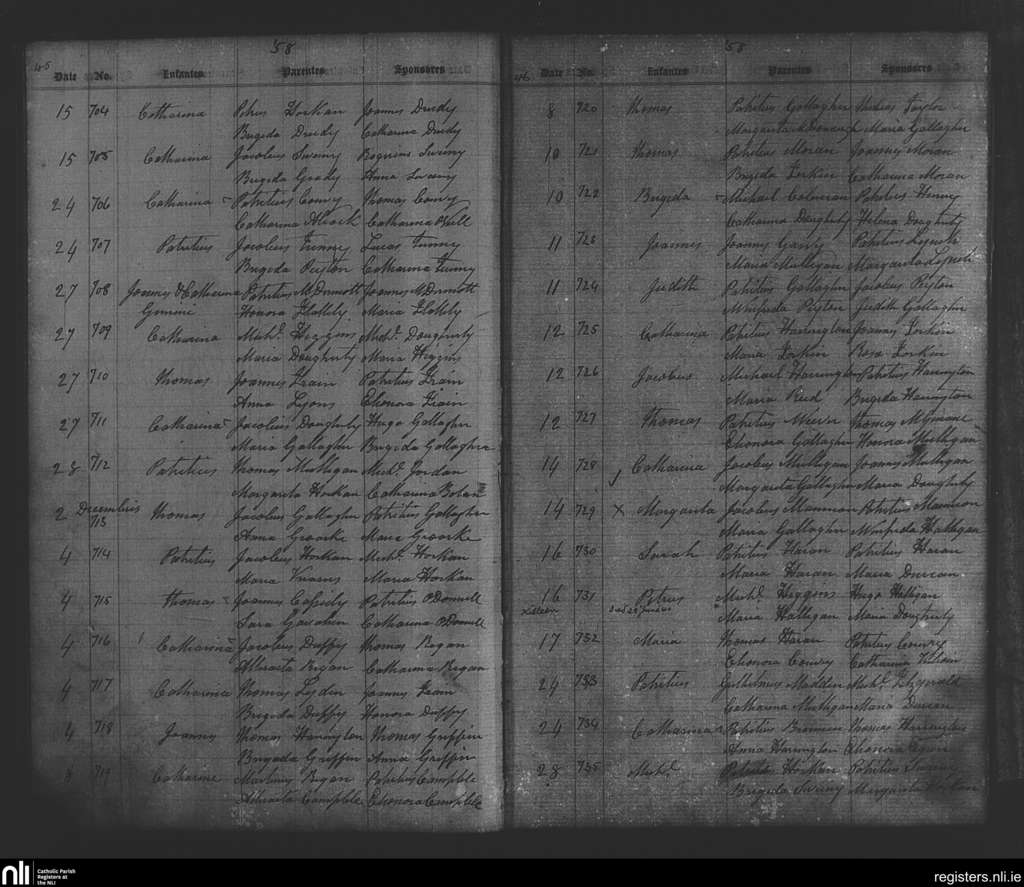 45
58
Date No. Infantes Parentes Sponsores
15 704 Catharina Petrus Horkan Joannes Drudy
Brigida Drudy Catharina Drudy
15 705 Catharina Jacobus Sweeny Sweeny
Brigida Grady Anna Sweeny
24 706 Catharina Patritius Conry Thomas Conry
Catharina Alcock Catharina O'Neill
24 707 Patritius Jacobus Funney Lucas Funney
Brigida Peyton Catharina Funney
27 708 Joannes & Catharina Patritius McDrmott Joannes McDrmott
Gemini Honora Flattly Maria Flattly
27 709 Catharina Michl. Higgins Michl. Dougherty
Maria Dougherty Maria Higgins
27 710 Thomas Joannes Frain Patritius Frain
Anna Lyons Elenora Frain
27 711 Catharina Jacobus Dougherty Hugo Gallagher
Maria Gallagher Brigida Gallagher
28 712 Patritius Thomas Mulligan Michl. Jordan
Margarita Horkan Catharina
2 Decembris 713 Thomas Jacobus Gallagher Patritius Gallagher
Anna Groarke Maria Groarke
4 714 Patritius Jacobus Horkan Michl. Horkan
Maria Maria Horkan
4 715 Thomas Joannes Cassidy Patritius O'Donnell
Sara Catharina O'Donnell
4 716 Catharina Jacobus Duffy Thomas Regan
Attracta Regan Catharina Regan
4 717 Catharina Thomas Lydon Joannes Frain
Brigida Duffy Honora Duffy
4 718 Joannes Thomas Harrington Thomas Griffin
Brigida Griffin Anna Griffin
8 719 Catharine Martinus Regan Patritius Campble
Attracta Campble Elenora Campble
46
58
Date No. Infantes Parentes Sponsores
8 720 Thomas Patritius Gallagher Taylor
Margarita McDonard Maria Gallagher
10 721 Thomas Patritius Moran Joannes Moran
Brigida Lorkin Catharina Moran
10 722 Brigida Michael Coleman Patritius Henry
Catharina Dougherty Helena Dougherty
11 723 Joannes Joannes Garvy Patritius Lynch
Maria Mulligan Margarita Lynch
11 724 Judith Patritius Gallagher Jacobus Peyton
Winifreda Peyton Judith Gallagher
12 725 Catharina Patritius Harrington Joannes Lorkin
Maria Lorkin Rosa Lorkin
12 726 Jacobus Michael Harrington Patritius Harrington
Maria Reid Brigida Harrington
12 727 Thomas Patritius Thomas
Elenora Gallagher Honora Mulligan
14 728 Catharina Jacobus Mulligan Joannes Mulligan
Margarita Gallagher Maria Dougherty
14 729 x Margarita Jacobus Mannion Patritius Mannion
Maria Gallagher Winifreda Halligan
16 730 Sarah Patritius Haran Patritius Haran
Maria Haran Maria Duncan
16 731 Petrus Michl. Higgins Hugo Halligan
Maria Halligan Maria Dougherty
17 732 Maria Thomas Haran Patritius Conry
Elenora Conry Catharina
24 733 Patritius Gulielmus Madden Michl. Fitzgerald
Catharina Mulligan Maria Duncan
24 734 Catharina Patritius Brennan Thomas Harrington
Anna Harrington Elenora
28 735 Michl. Patritius Horkan Patritius Sweeny
Brigida Sweeny Margarita Horkan
nli Catholic Parish Registers at the NLI
registers.nli.ie